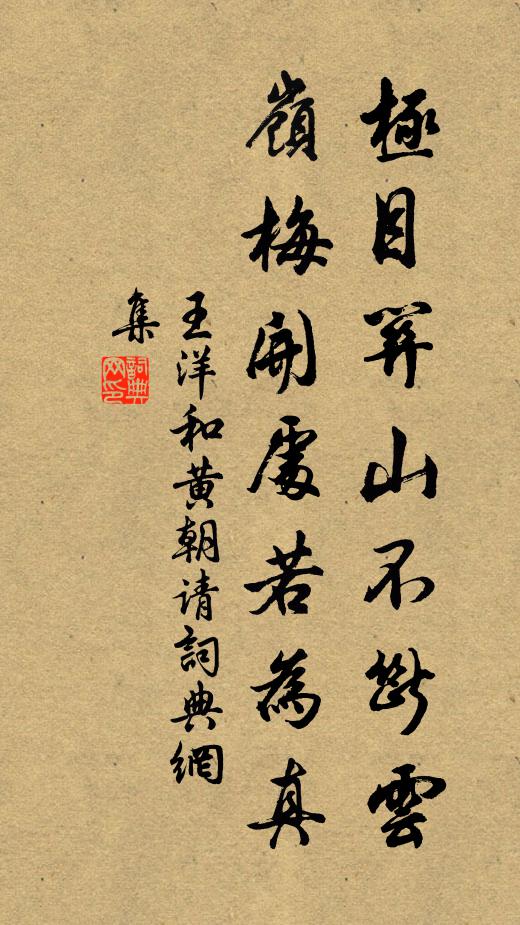 極目關山不斷雲
嶺梅開處若為真
王洋和黄朝请詞典網
集
詞典
网印